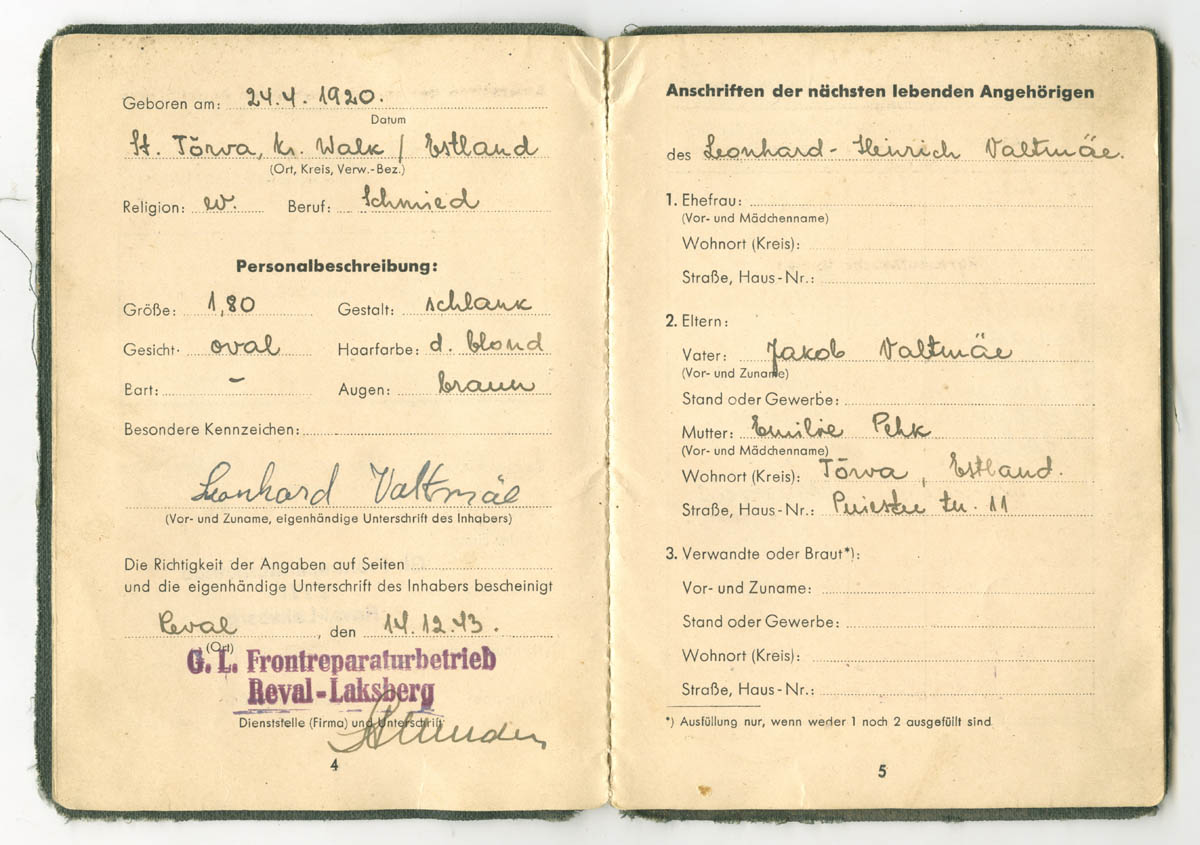 Geboren am: 24.4.1920.
Datum
St. Tõrva, Kr. Walk / Estland
(Ort, Kreis, Verw.-Bez.)
Religion: ev. Beruf: Schmied
Personalbeschreibung:
Größe: 1,80 Gestalt: schlank
Gesicht: oval Haarfarbe: d. blond
Bart: - Augen: braun
Besondere Kennzeichen:
Leonhard Valtmäe
(Vor- und Zuname, eigenhändige Unterschrift des Inhabers)
Die Richtigkeit der Angaben auf Seiten
und die eigenhändige Unterschrift des Inhabers bescheinigt
Reval, den 14.12.43.
(Ort)
G. L. Frontreparaturbetrieb
Reval-Laksberg
Dienststelle (Firma) und Unterschrift
4
Anschriften der nächsten lebenden Angehörigen
des Leonhard-Heinrich Valtmäe.
1. Ehefrau:
(Vor- und Mädchenname)
Wohnort (Kreis):
Straße, Haus-Nr.:
2. Eltern:
Vater: Jakob Valtmäe
(Vor- und Zuname)
Stand oder Gewerbe:
Mutter: Emilie Pehk
(Vor- und Mädchenname)
Wohnort (Kreis): Tõrva, Estland.
Straße, Haus-Nr.: Puiestee tn. 11
3. Verwandte oder Braut*):
Vor- und Zuname:
Stand oder Gewerbe:
Wohnort (Kreis):
Straße, Haus-Nr.:
*) Ausfüllung nur, wenn weder 1 noch 2 ausgefüllt sind
5